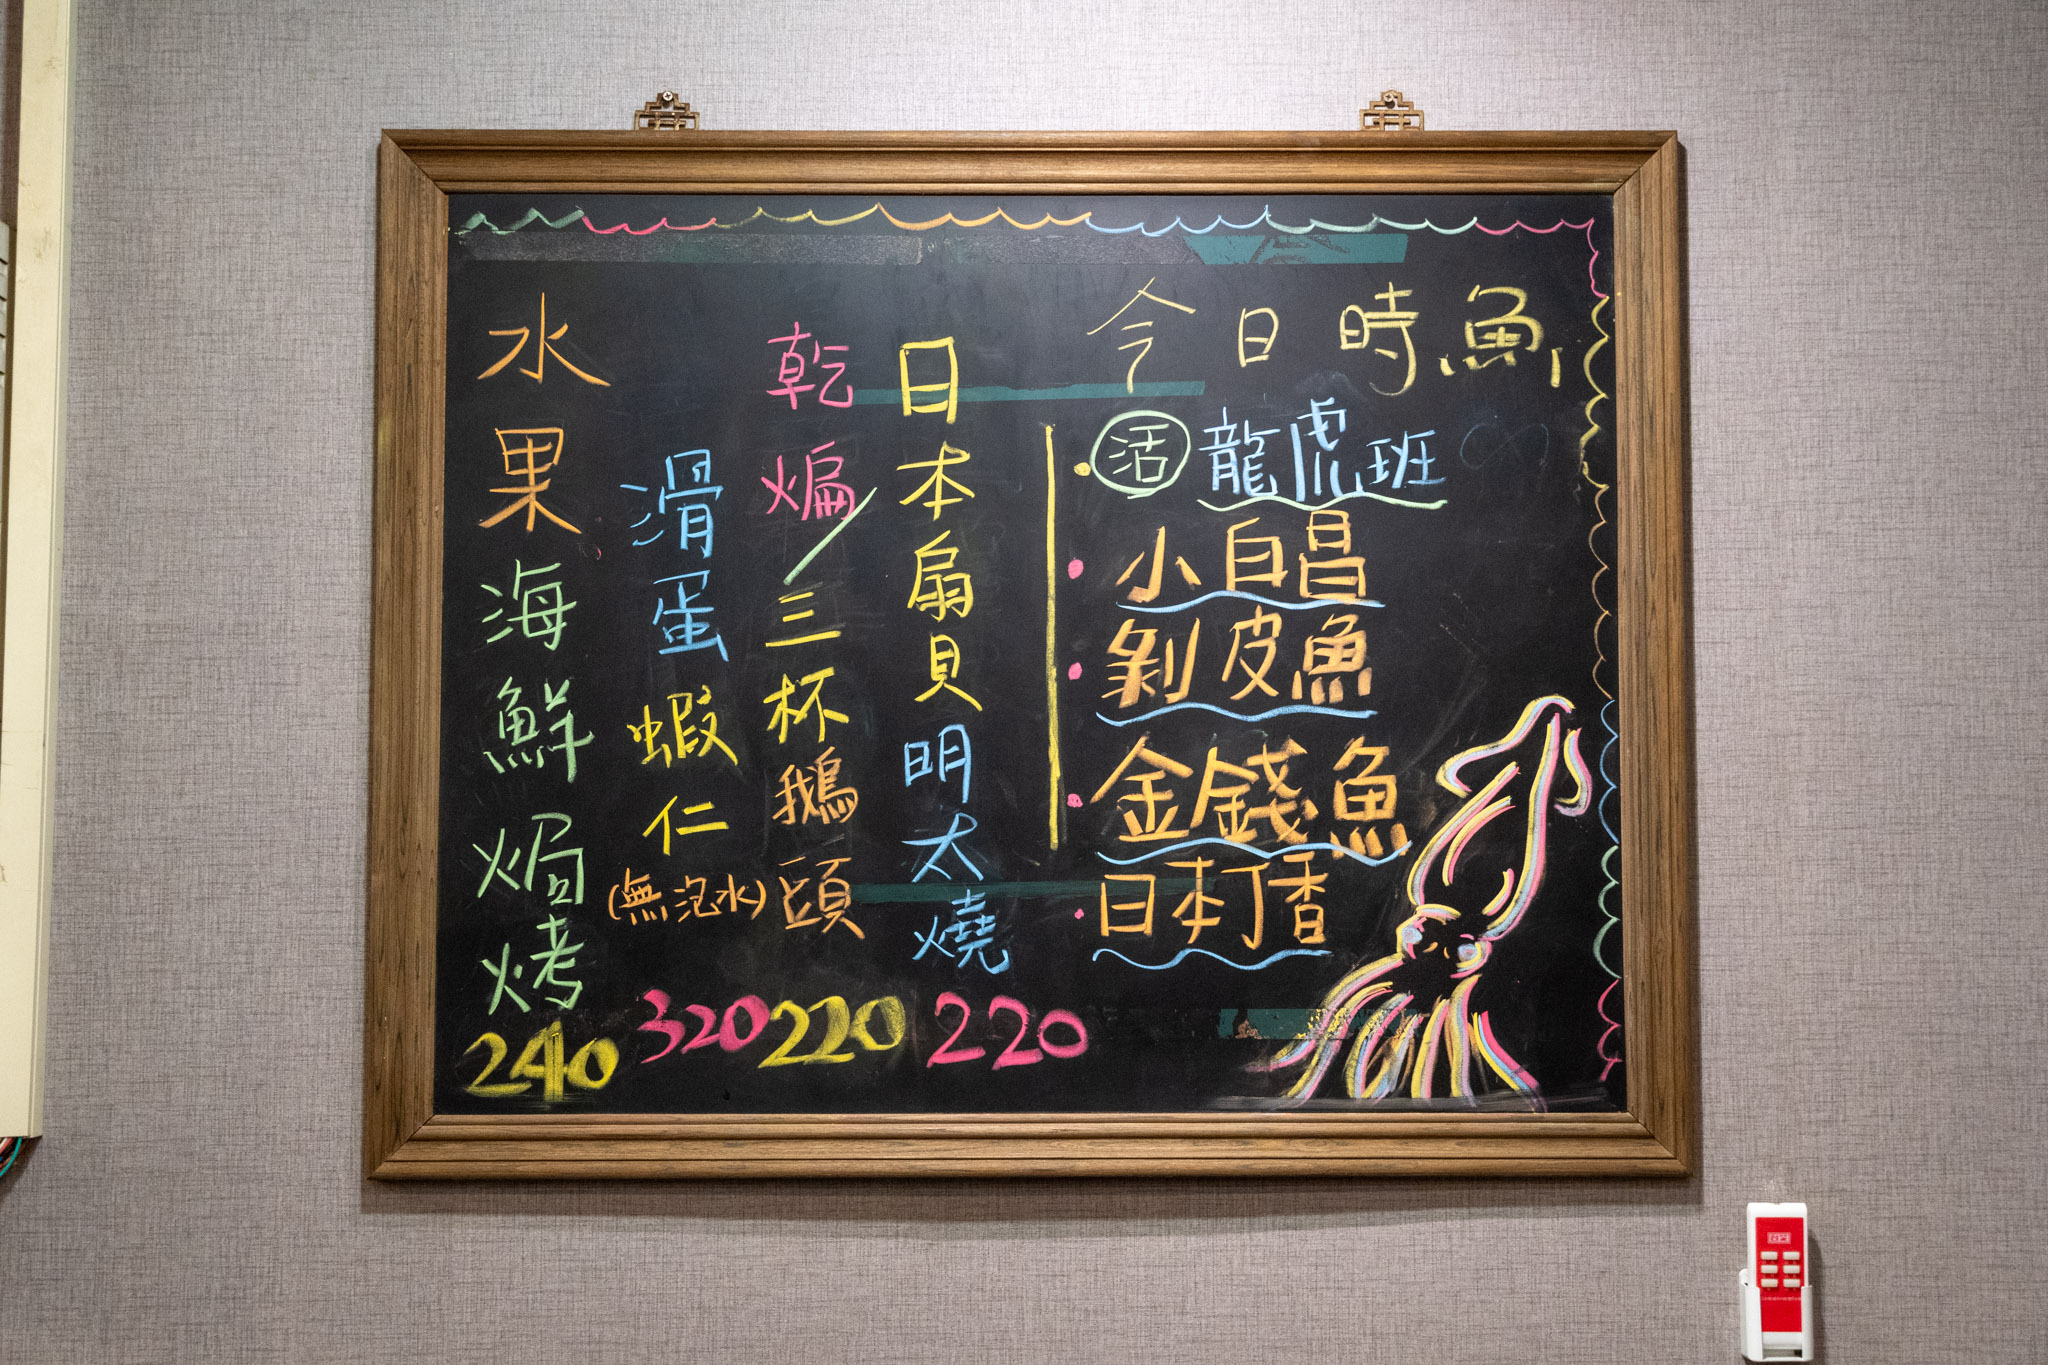 今日時魚
活 龍虎班
小自昌
剝皮魚
金錢魚
日本丁香
日本扇貝明太燒
220
乾煸/三杯鵝頭
220
滑蛋蝦仁
(無泡水)
320
水果海鮮焗烤
240